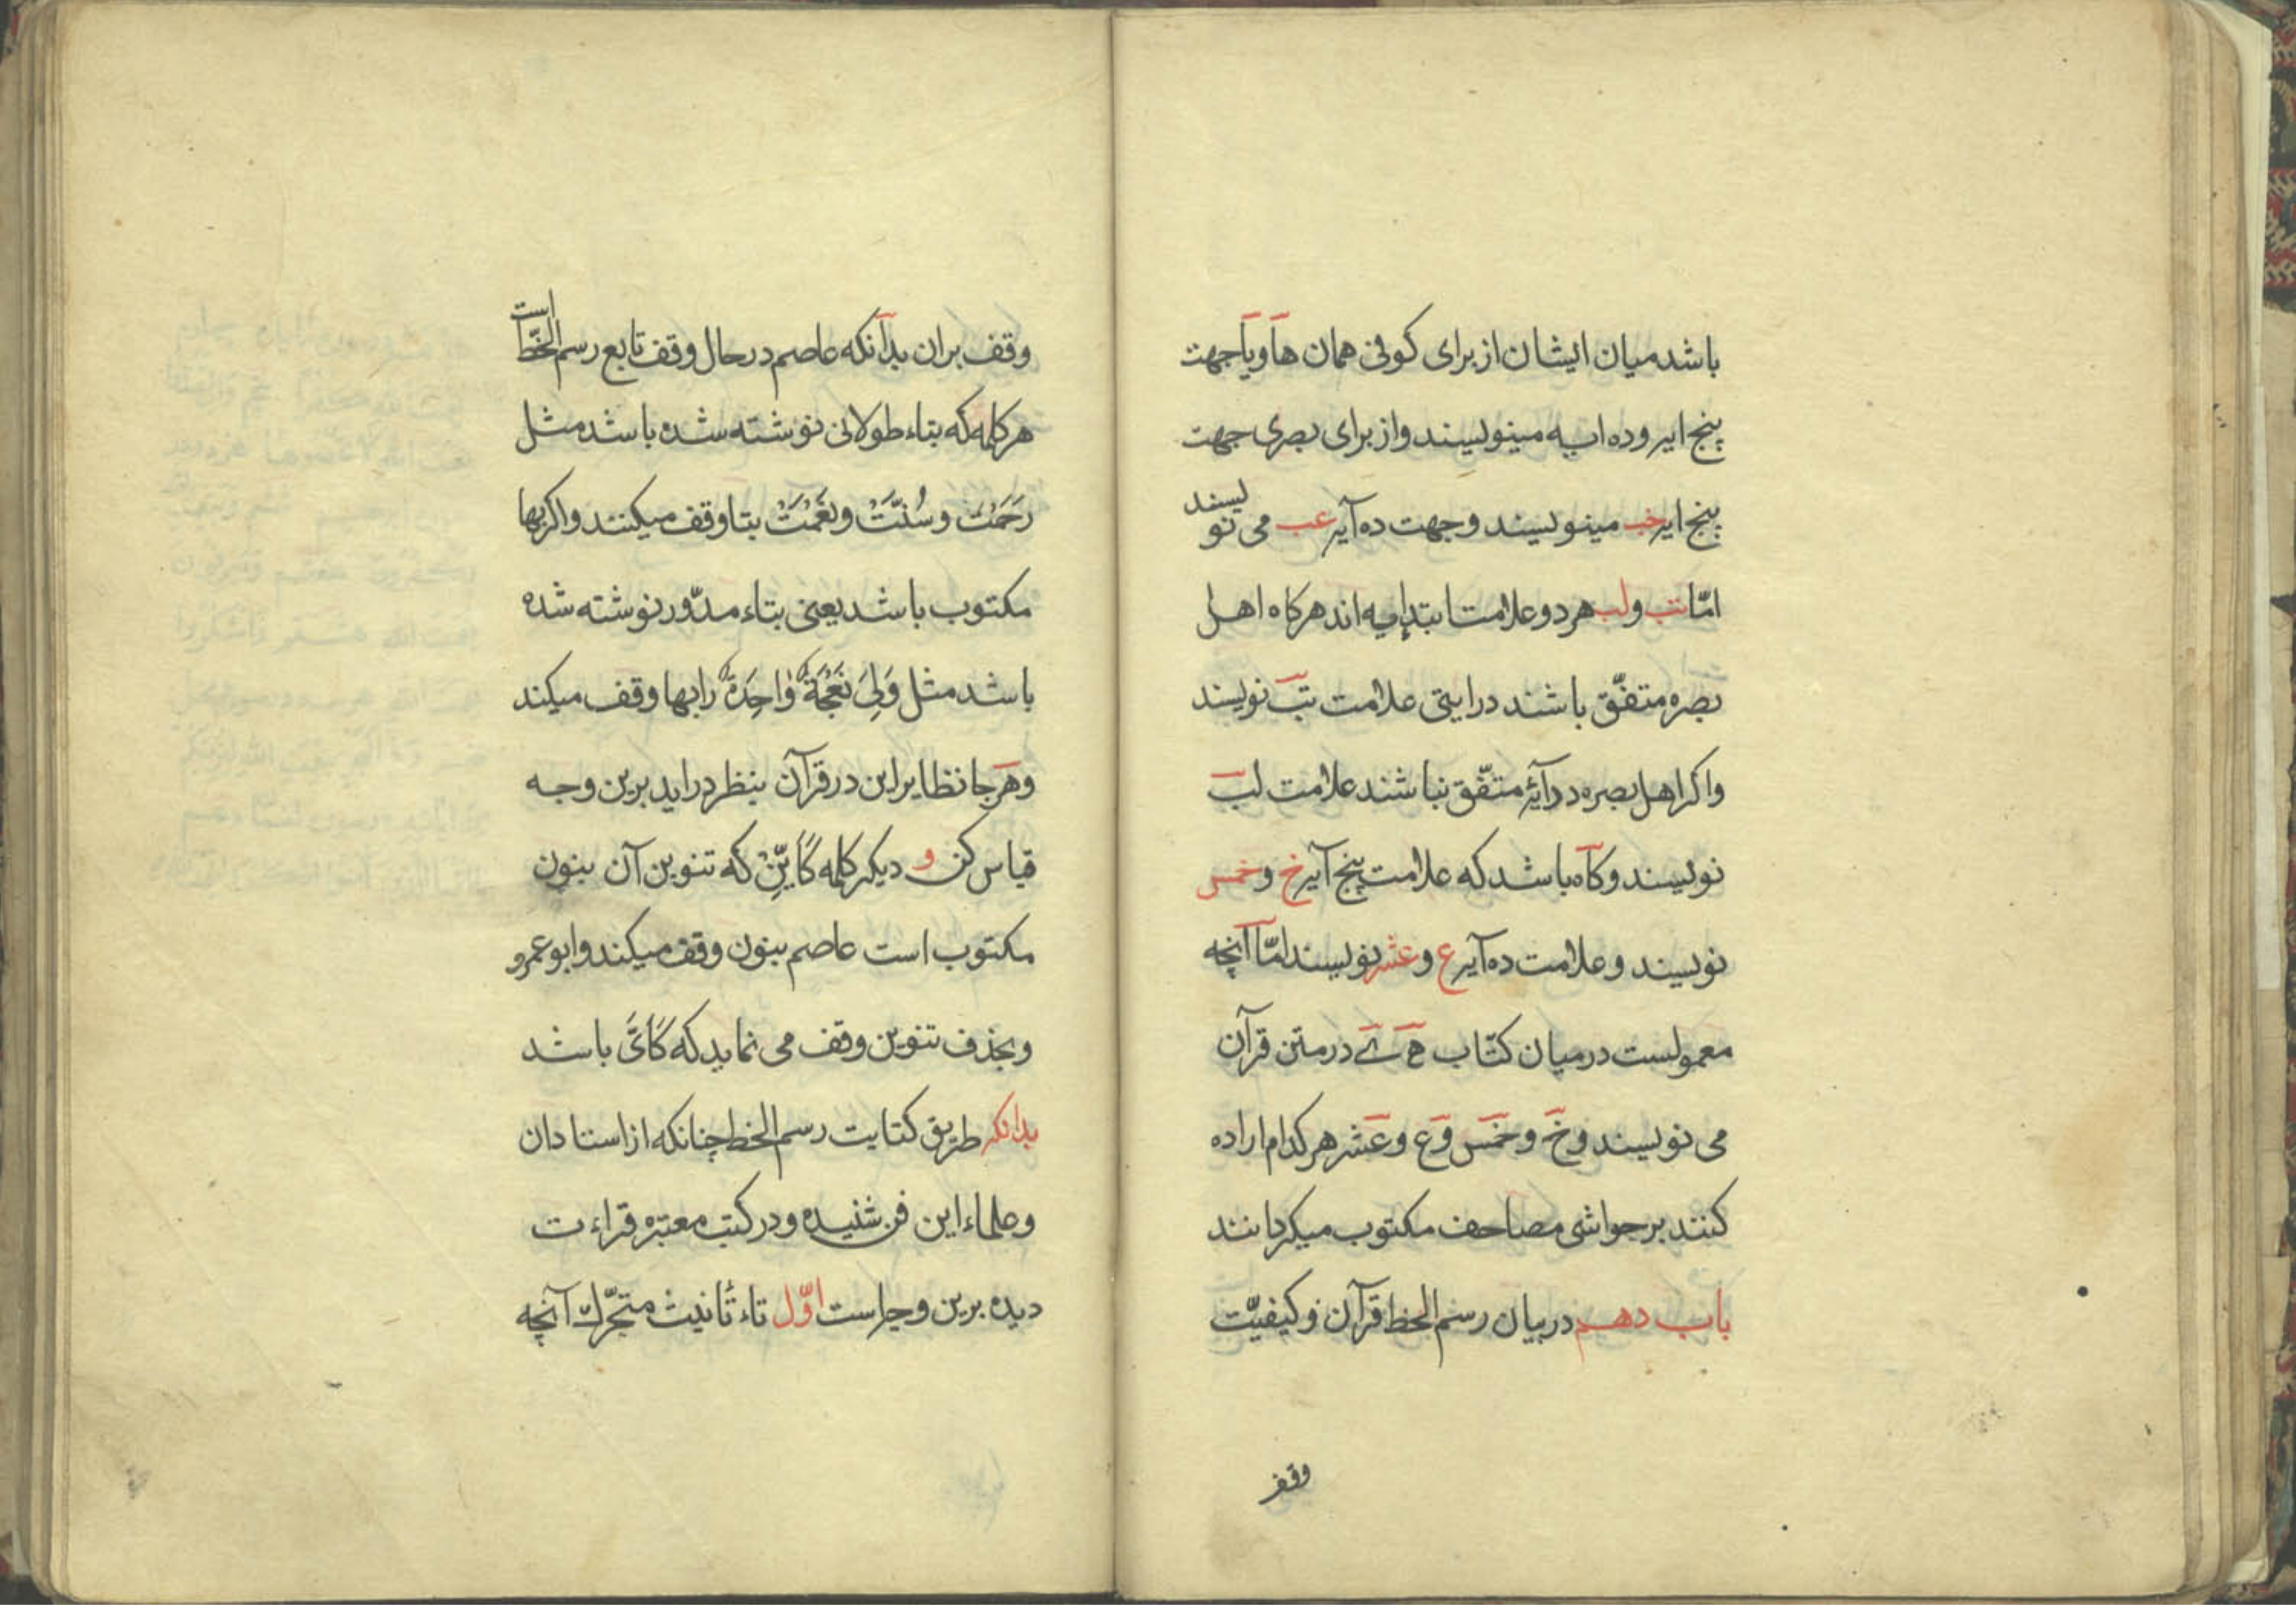 باشد میان ایشان از برای کوفی همان ها و یا جهت
پنج ایه و ده ایه مینویسند و از برای بصری جهت
پنج ایه خب مینویسند و جهت ده آیه عب می نویسند
امّا تب و لب هر دو علامت ابتدا یه اند هرکاه اهل
بصره متفّق باشند در ایتی علامت تب نویسند
واکر اهل بصره در آیهٔ متفّق نباشند علامت لب
نویسند و کاه باشد که علامت پنج آیه خ و خمس
نویسند و علامت ده آیه ع و عشر نویسند امّا آنچه
معمولست در میان کتّاب ه ے در متن قرآن
می نویسند و خ و خمس و ع و عشر هر کدام اراده
کنند بر حواشی مصاحف مکتوب میکردانند
باب دهم در بیان رسم الخط قرآن و کیفیّت
وقف
وقف بران بدآنکه عاصم در حال وقف تابع رسم الخّط است
هر کلمه که بتاء طولانی نوشته شده باشد مثل
رَحْمَتْ وسُنَّتْ ونِعْمَتْ بتا وقف میکنند واکر بها
مکتوب باشد یعنی بتاء مدّور نوشته شده
باشد مثل وَلِیَ نَعْجَةٌ وٰاحِدَةٌ را بها وقف میکند
وهر جا نظایر این در قرآن بنظر دراید برین وجه
قیاس کن و دیکر کلمه کَاَیِّنْ که تنوین آن بنون
مکتوب است عاصم بنون وقف میکند وابو عمرو
وبحذف تنوین وقف می نماید که کَاَیَّ باشد
بدانکه طریق کتابت رسم الخط چنانکه از استادان
وعلماء این فن شنیده و در کتب معتبره قراءت
دیده برین وجه است اوّل تاء تأنیث متحّرك آنچه